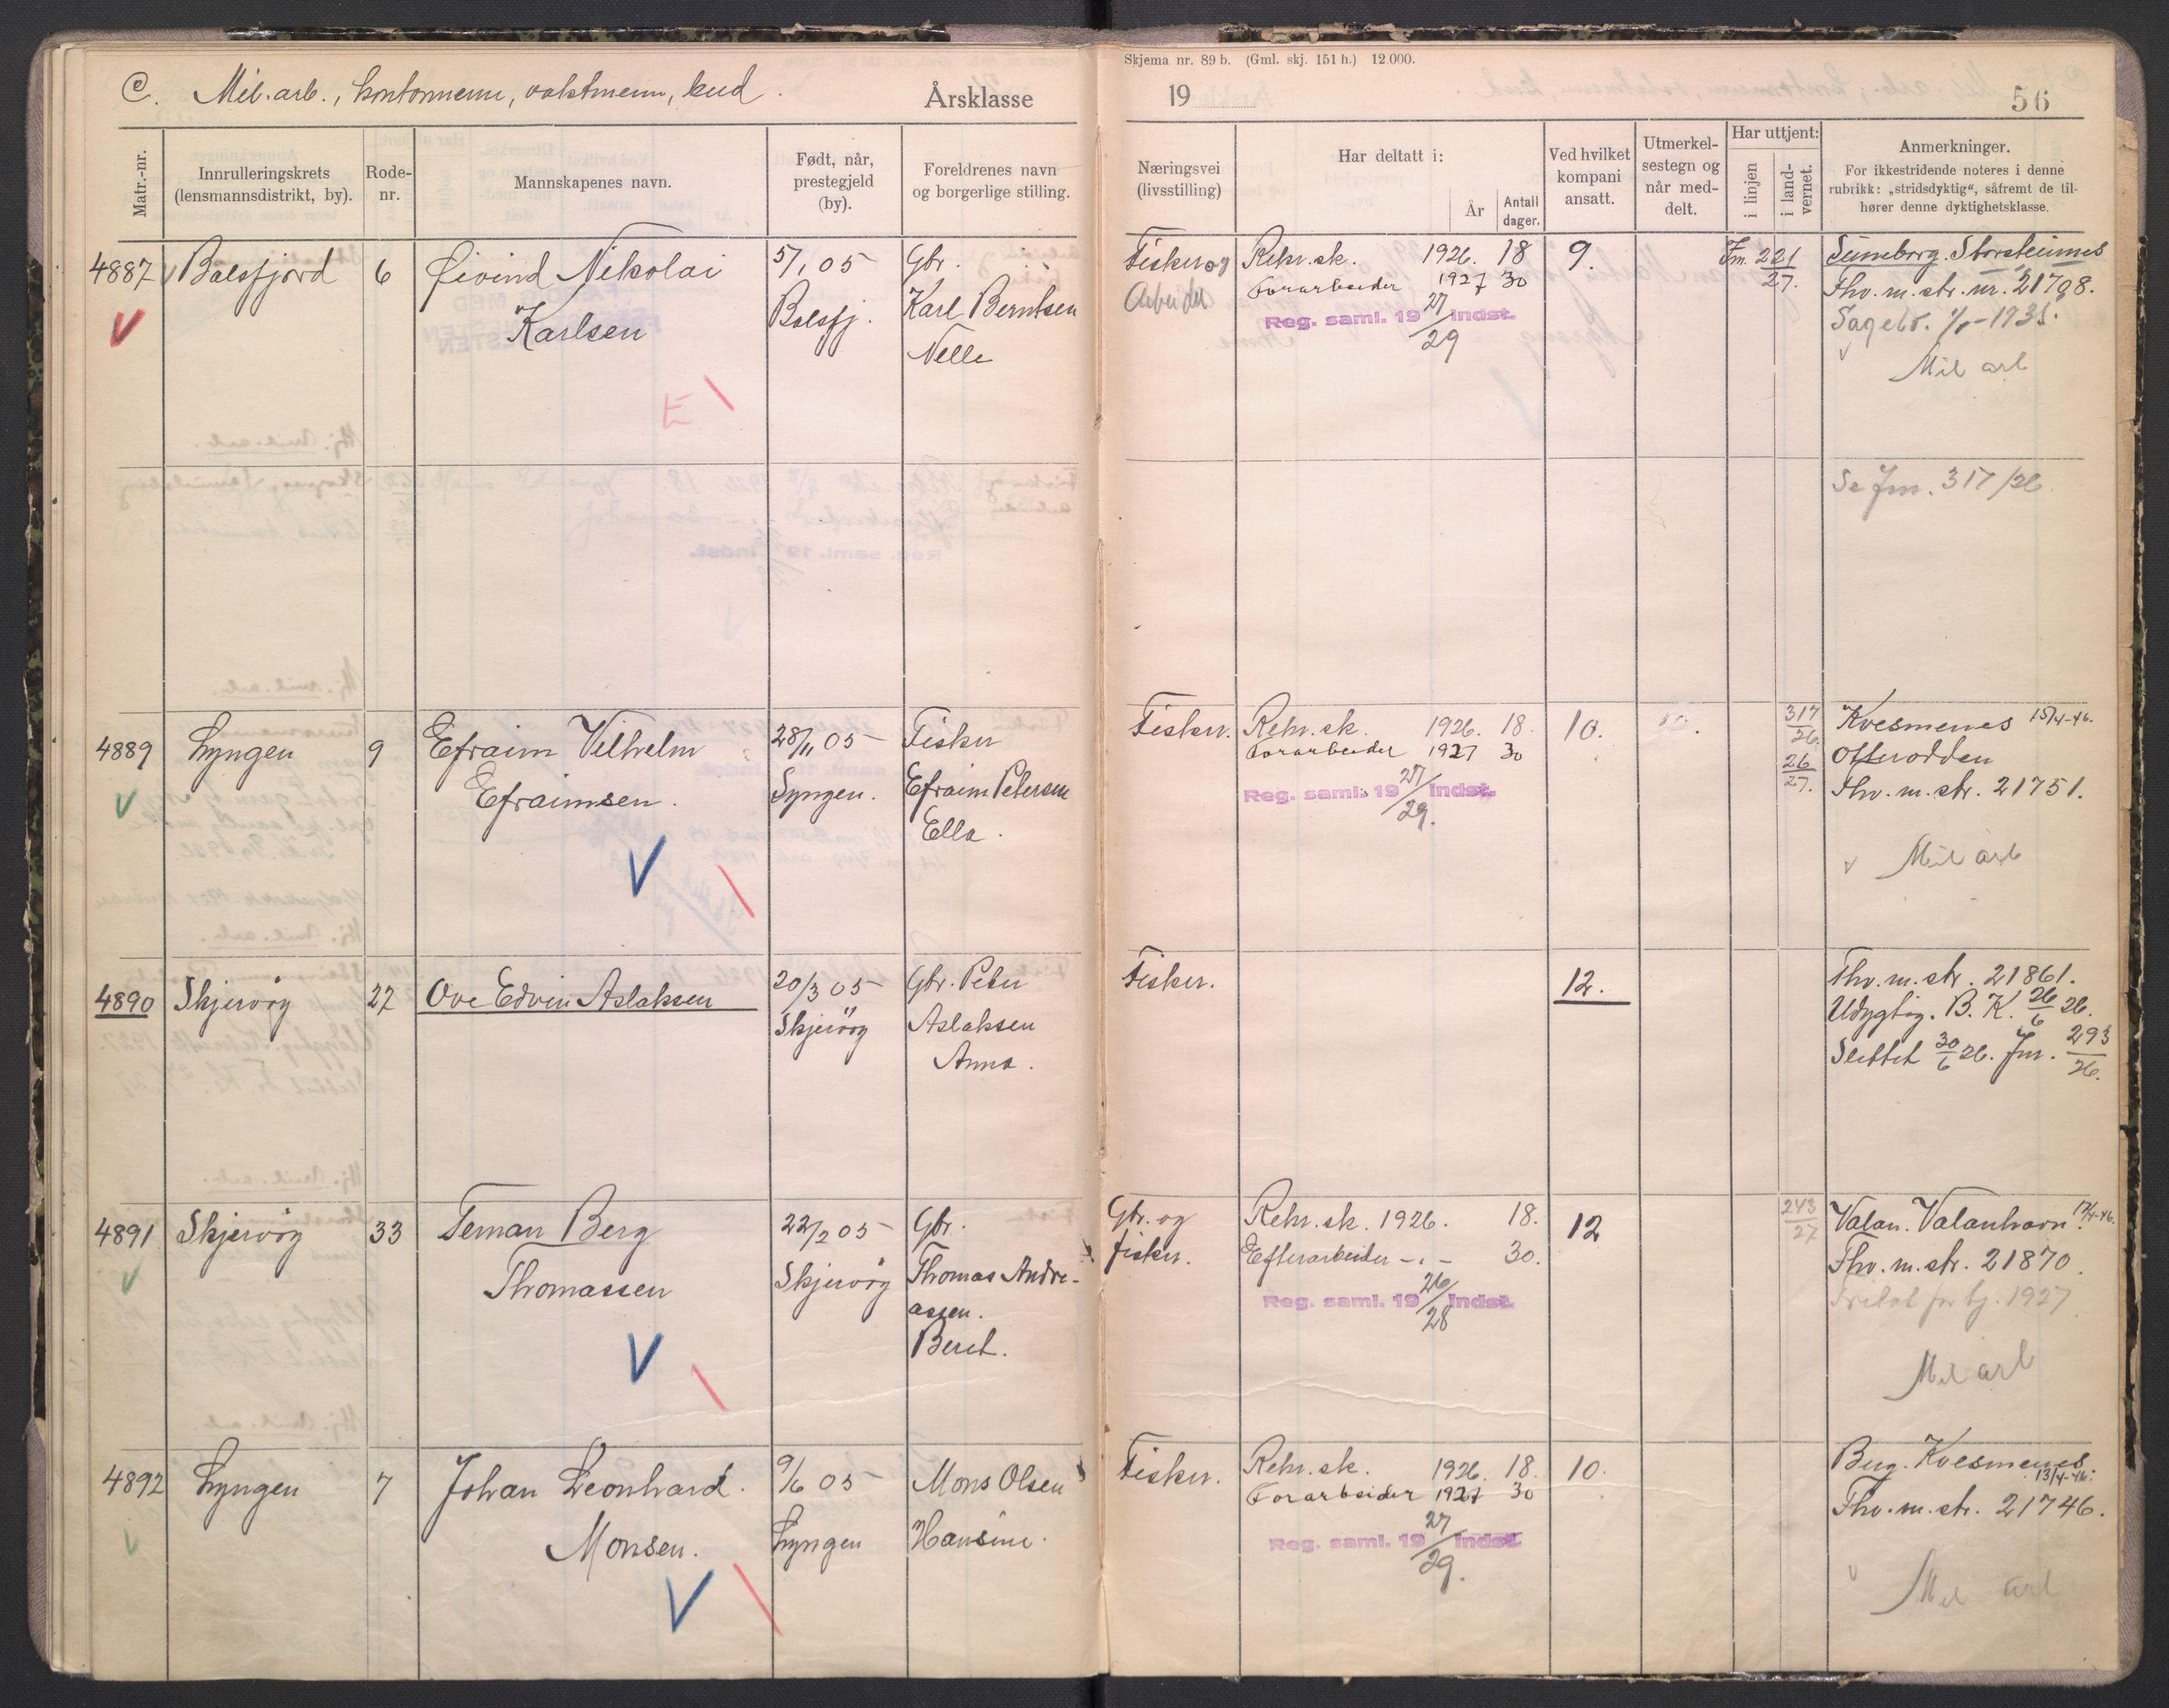 C. Mil. arb., kontormenn, vaktmenn, bud.
Årsklasse
Skjema nr. 89 b. (Gml. skj. 151 h.) 12.000.
19
56
Matr.-nr.
Innrulleringskrets
(lensmannsdistrikt, by).
Rode-
nr.
Mannskapenes navn.
Født, når,
prestegjeld
(by).
Foreldrenes navn
og borgerlige stilling.
Næringsvei
(livsstilling)
Har deltatt i:
År
Antall
dager.
Ved hvilket
kompani
ansatt.
Utmerkel-
sestegn og
når med-
delt.
Har uttjent:
i linjen
i land-
vernet.
Anmerkninger.
For ikkestridende noteres i denne
rubrikk: „stridsdyktig“, såfremt de til-
hører denne dyktighetsklasse.
4887 Balsfjord 6 Øivind Nikolai
Karlsen
5/1 05
Balsfj.
Gbr.
Karl Berntsen
Nelle
Fisker og
Arbeider
Rekr. sk. 1926. 18
Forarbeider 1927 30
Reg. saml. 19 27/29 indst.
9.
Jm. 221/27.
Storsteinnes
Thv. m. str. nr. 21798.
1935.
Mil arb
E
Se Jm. 317/26
4889 Lyngen 9 Efraim Vilhelm
Efraimsen.
28/11 05
Lyngen.
Fisker
Efraim Petersen
Ella.
Fisker.
Rekr. sk. 1926. 18.
Forarbeider 1927 30
Reg. saml. 19 27/29. indst.
10.
317/26.
26/27.
Kvesmenes 15/4-46.
Otterodden
Thv. m. str. 21751.
Mil arb
4890 Skjervøy 27 Ove Edvin Aslaksen
20/3 05
Skjervøy
Gbr. Peter
Aslaksen
Anna.
Fisker.
12.
Thv. m. str. 21861.
Udygtig. B. K. 26/6 26.
Slettet 30/6 26. Jm. 293/26.
4891 Skjervøy 33 Teman Berg
Thomassen
22/2 05
Skjervøy
Gbr.
Thomas Andre-
assen.
Beret.
Gbr. og
fisker.
Rekr. sk. 1926. 18.
Efterarbeider -"- 30.
Reg. saml. 19 26/28 indst.
12
243/27
Valan. Valanhavn. 17/4-46.
Thv. m. str. 21870.
1927
Mil arb
4892 Lyngen 7 Johan Leonhard.
Monsen.
9/6 05
Lyngen
Mons Olsen
Hansine.
Fisker.
Rekr. sk. 1926. 18.
Forarbeider 1927 30
Reg. saml. 19 27/29. indst.
10.
Kvesmenes
13/4-46.
Thv. m. str. 21746.
Mil arb